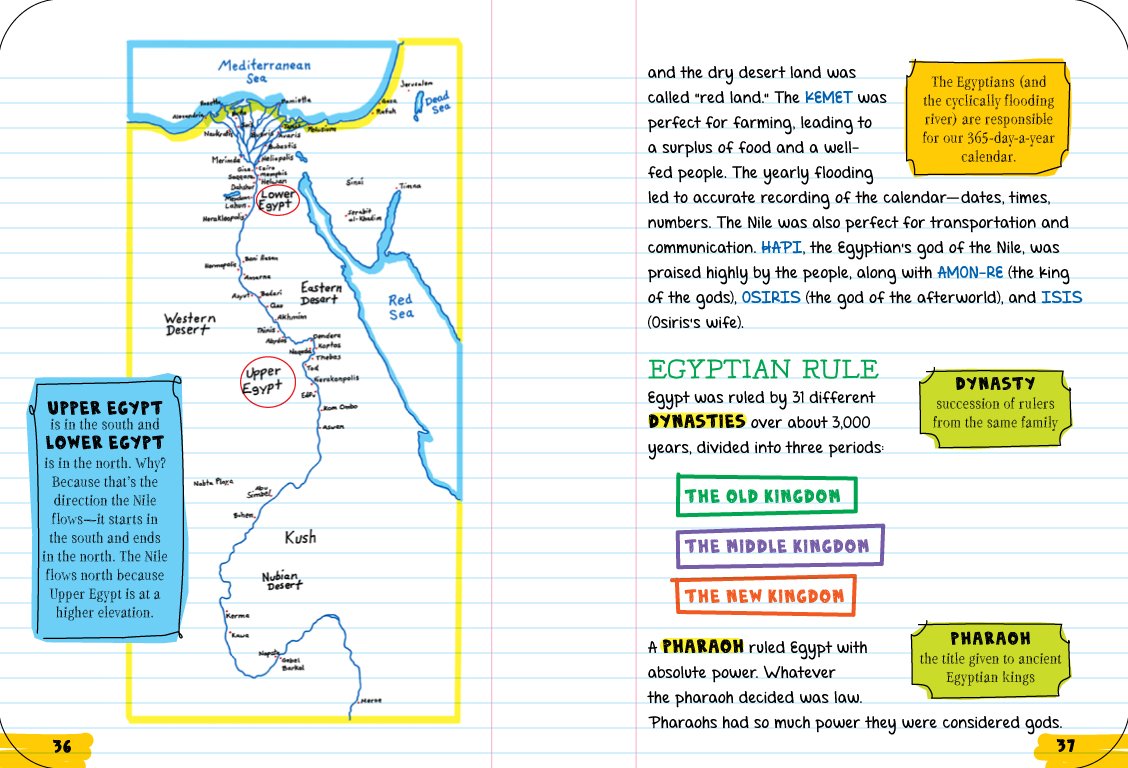 Mediterranean
Sea
Jerusalem
Dead
Sea
Gaza
Rafah
Rosetta
Damietta
Alexandria
Buto
Sais
Tanis
Pelusium
Naukratis
Busiris
Avaris
Bubastis
Merimda
Heliopolis
Giza
Cairo
Saqqara
Memphis
Helwan
Dahshur
Sinai
Timna
Meydum
Lahun
Lower
Egypt
Serabit
al-Khadim
Herakleopolis
Beni Hasan
Hermopolis
Amarna
Asyut
Badari
Qau
Eastern
Desert
Red
Sea
Western
Desert
Akhmim
Thinis
Abydos
Dendera
Koptos
Naqada
Thebes
Tod
Upper
Egypt
Hierakonpolis
Edfu
Kom Ombo
Aswan
Nabta Playa
Abu
Simbel
Buhen
Kush
Nubian
Desert
Kerma
Kawa
Napata
Gebel
Barkal
Meroe
UPPER EGYPT
is in the south and
LOWER EGYPT
is in the north. Why?
Because that's the
direction the Nile
flows—it starts in
the south and ends
in the north. The Nile
flows north because
Upper Egypt is at a
higher elevation.
36
and the dry desert land was
called "red land." The KEMET was
perfect for farming, leading to
a surplus of food and a well-
fed people. The yearly flooding
led to accurate recording of the calendar—dates, times,
numbers. The Nile was also perfect for transportation and
communication. HAPI, the Egyptian's god of the Nile, was
praised highly by the people, along with AMON-RE (the king
of the gods), OSIRIS (the god of the afterworld), and ISIS
(Osiris's wife).
The Egyptians (and
the cyclically flooding
river) are responsible
for our 365-day-a-year
calendar.
EGYPTIAN RULE
Egypt was ruled by 31 different
DYNASTIES over about 3,000
years, divided into three periods:
DYNASTY
succession of rulers
from the same family
THE OLD KINGDOM
THE MIDDLE KINGDOM
THE NEW KINGDOM
A PHARAOH ruled Egypt with
absolute power. Whatever
the pharaoh decided was law.
Pharaohs had so much power they were considered gods.
PHARAOH
the title given to ancient
Egyptian kings
37